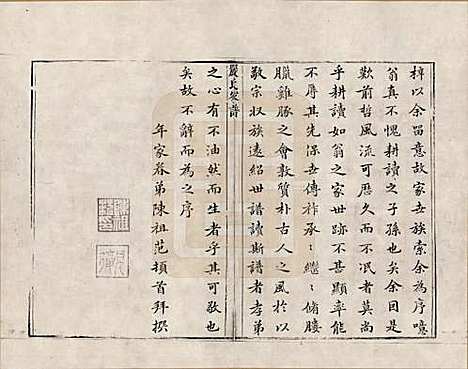 梓以余留意故家世族索余為序噫
翁真不愧耕讀之子孫也矣余因是
歎前哲風流可歷久而不氓者莫尚
乎耕讀如翁之家世跡不甚顯率能
不辱其先深世傳祚承〻繼〻脩膢
臘雞豚之會敦質朴古人之風於以
敬宗收族遠紹世譜讀斯譜者孝弟
嚴氏家譜
之心有不油然而生者乎其可敬也
矣故不辭而為之序
年家眷弟陳祖范頓首拜撰